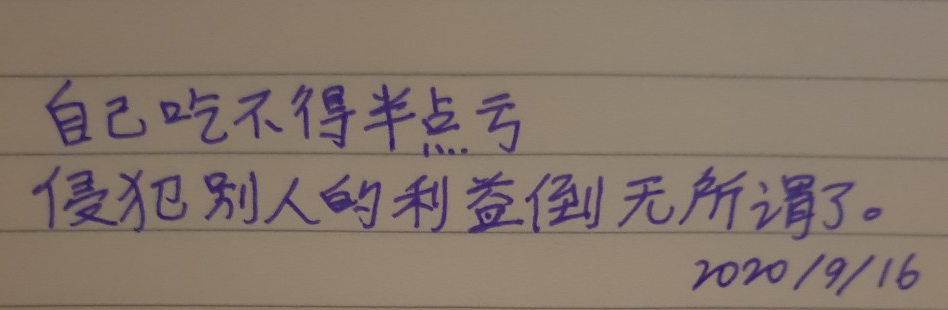 自己吃不得半点亏
侵犯别人的利益倒无所谓了。
2020/9/16